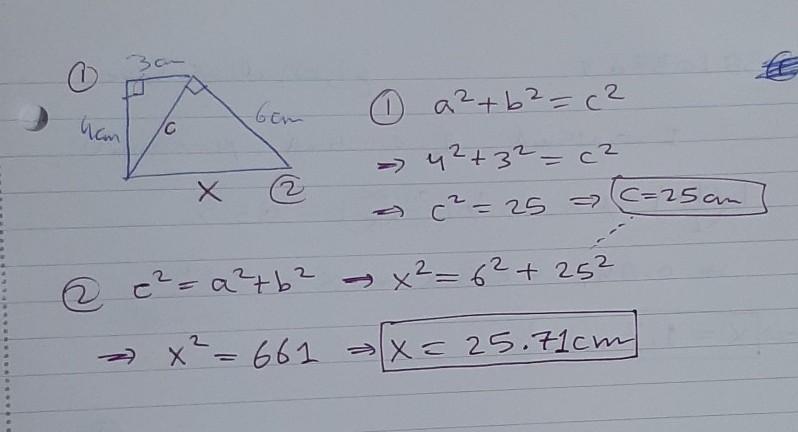 ① 3cm
4cm c 6cm
x ②
① a²+b²=c²
⇒ 4²+3²=c²
⇒ c²=25 ⇒ C=25cm
② c²=a²+b² → x²=6²+25²
⇒ x²=661 ⇒ x=25.71cm